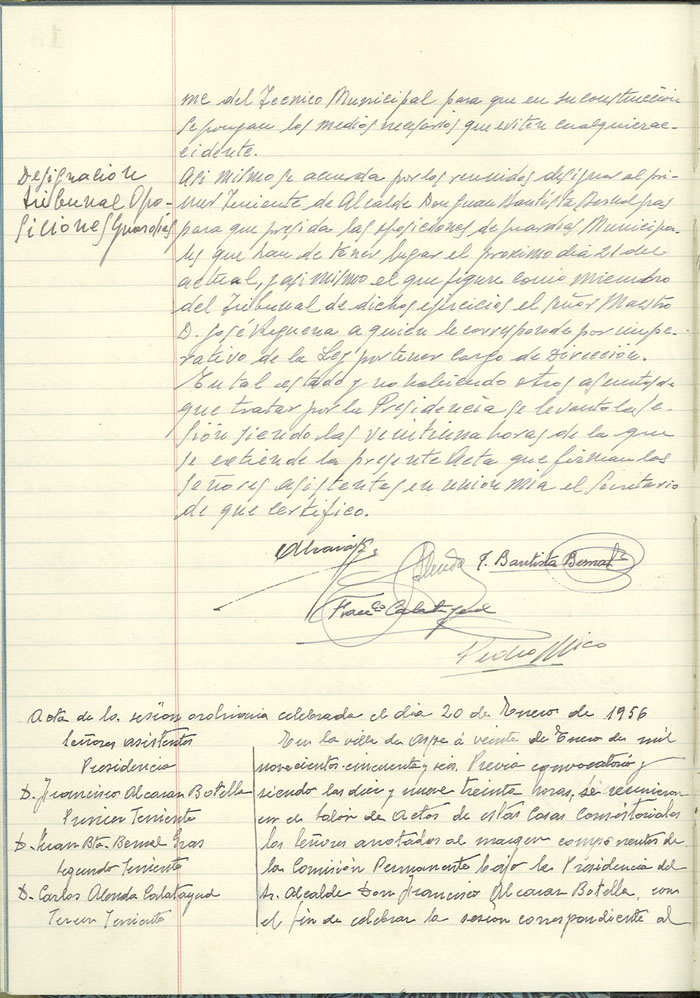 me del Tecnico Municipal para que en su construcción
se pongan los medios necesarios que eviten cualquier ac-
cidente.
Designacion
Tribunal Opo-
siciones Guardias
Asi mismo se acuerda por los reunidos designar al pri-
mer Teniente de Alcalde Don Juan Bautista Bernal Gras
para que presida las oposiciones de guardias Municipa-
les que han de tener lugar el proximo dia 21 del
actual, y asi mismo el que figure como miembro
del Tribunal de dichos ejercicios el señor Maestro
D. José Reguena a quien le corresponde por impe-
rativo de la Ley por tener cargo de Dirección.
En tal estado y no habiendo otros asuntos de
que tratar por la Presidencia se levantó la se-
sión siendo las veintiuna horas de la que
se extiende la presente Acta que firman los
señores asistentes en union mia el Secretario
de que certifico.
Alenda
J. Bautista Bernal
Franco Calatayud
Pedro Mico
Acta de la sesión ordinaria celebrada el dia 20 de Enero de 1956
Señores asistentes
Presidencia
D. Francisco Alcaraz Botella
Primer Teniente
D. Juan Bta. Bernal Gras
Segundo Teniente
D. Carlos Alenda Calatayud
Tercer Teniente
En la villa de Aspe á veinte de Enero de mil
novecientos cincuenta y seis. Previa convocatoria y
siendo las diez y nueve treinta horas, se reunieron
en el Salón de Actos de estas Casas Consistoriales
los Señores anotados al margen componentes de
la Comisión Permanente bajo la Presidencia del
Sr. Alcalde Don Francisco Alcaraz Botella, con
el fin de celebrar la sesión correspondiente al